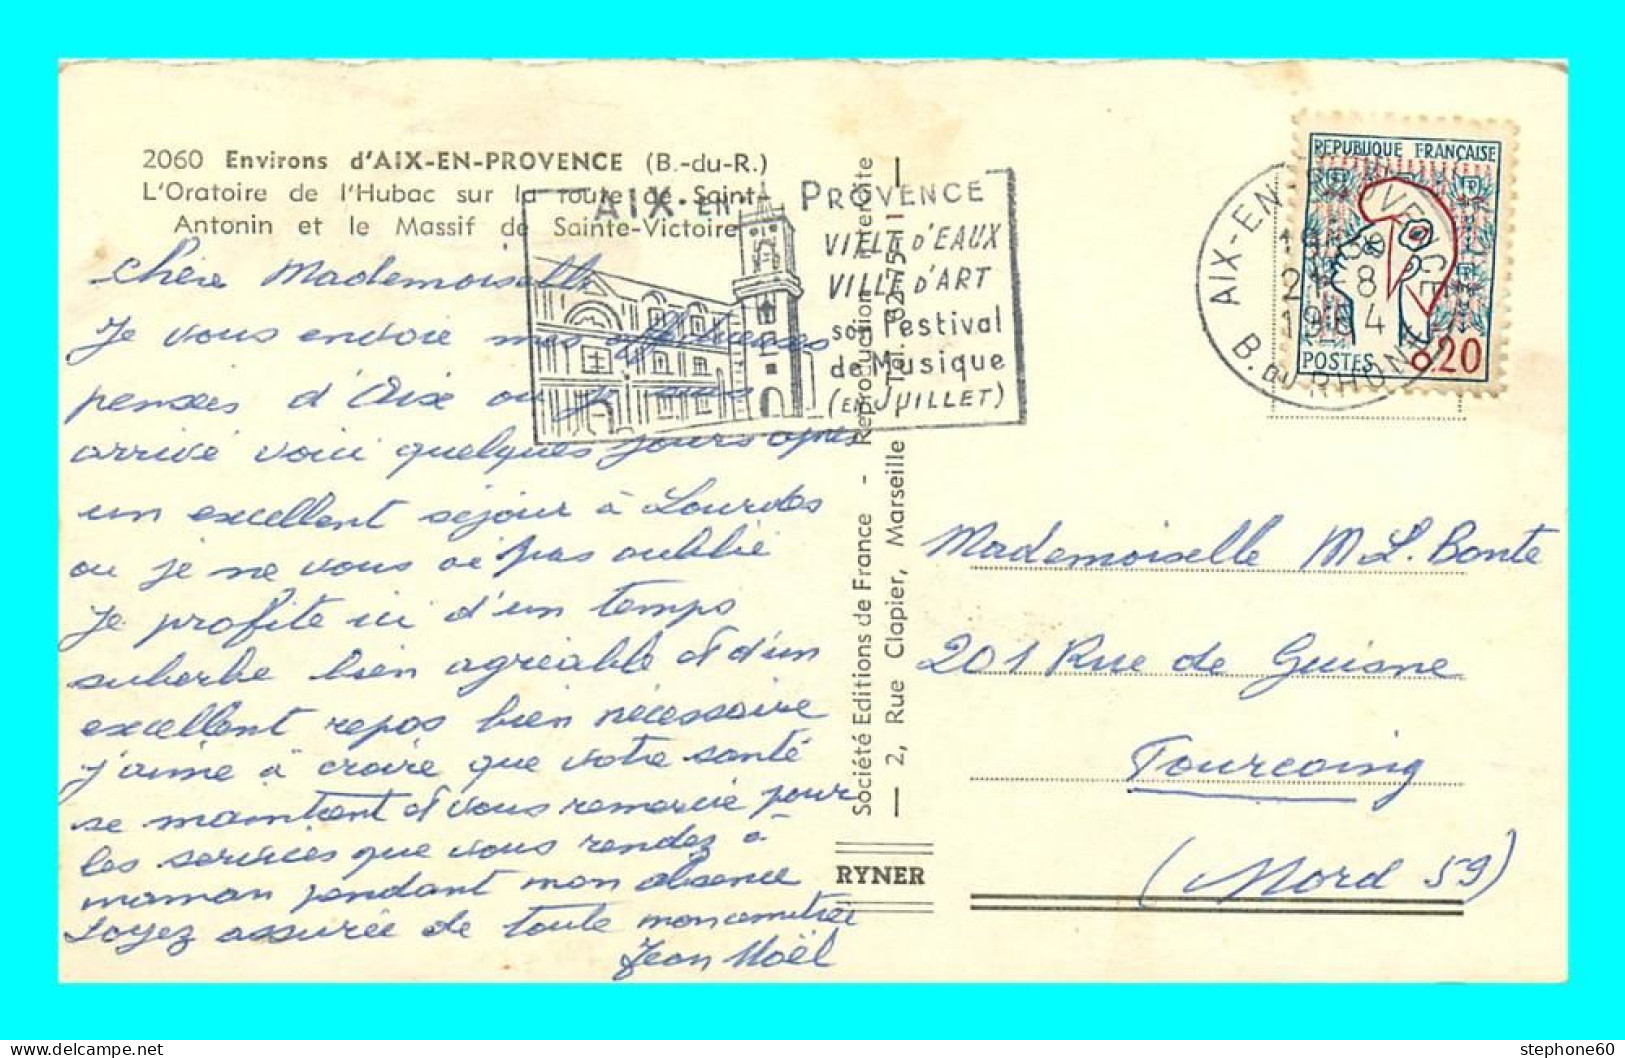 2060 Environs d'AIX-EN-PROVENCE (B.-du-R.)
L'Oratoire de l'Hubac sur la route de Saint-
Antonin et le Massif de Sainte-Victoire
AIX-EN-PROVENCE
VILLE D'EAUX
VILLE D'ART
son Festival
de Musique
(EN JUILLET)
Chère Mademoiselle
Je vous envoie mes affectueuses
pensées d'Aix ou je suis
arrivé voici quelques jours après
un excellent séjour à Lourdes
ou je ne vous ai pas oublié
Je profite ici d'un temps
superbe bien agréable et d'un
excellent repos bien nécessaire
j'aime à croire que votre santé
se maintient et vous remercie pour
les services que vous rendez à
maman pendant mon absence
Soyez assurée de toute mon amitié
Jean Noël
Société Editions de France - Reproduction interdite
— 2, Rue Clapier, Marseille Tél. 62-75-11 —
RYNER
REPUBLIQUE FRANÇAISE
POSTES 0.20
AIX-EN-PROVENCE
21-8
1964
B. DU RHONE
Mademoiselle M L. Bonte
201 Rue de Guisne
Tourcoing
(Nord 59)
delcampe.net
stephone60